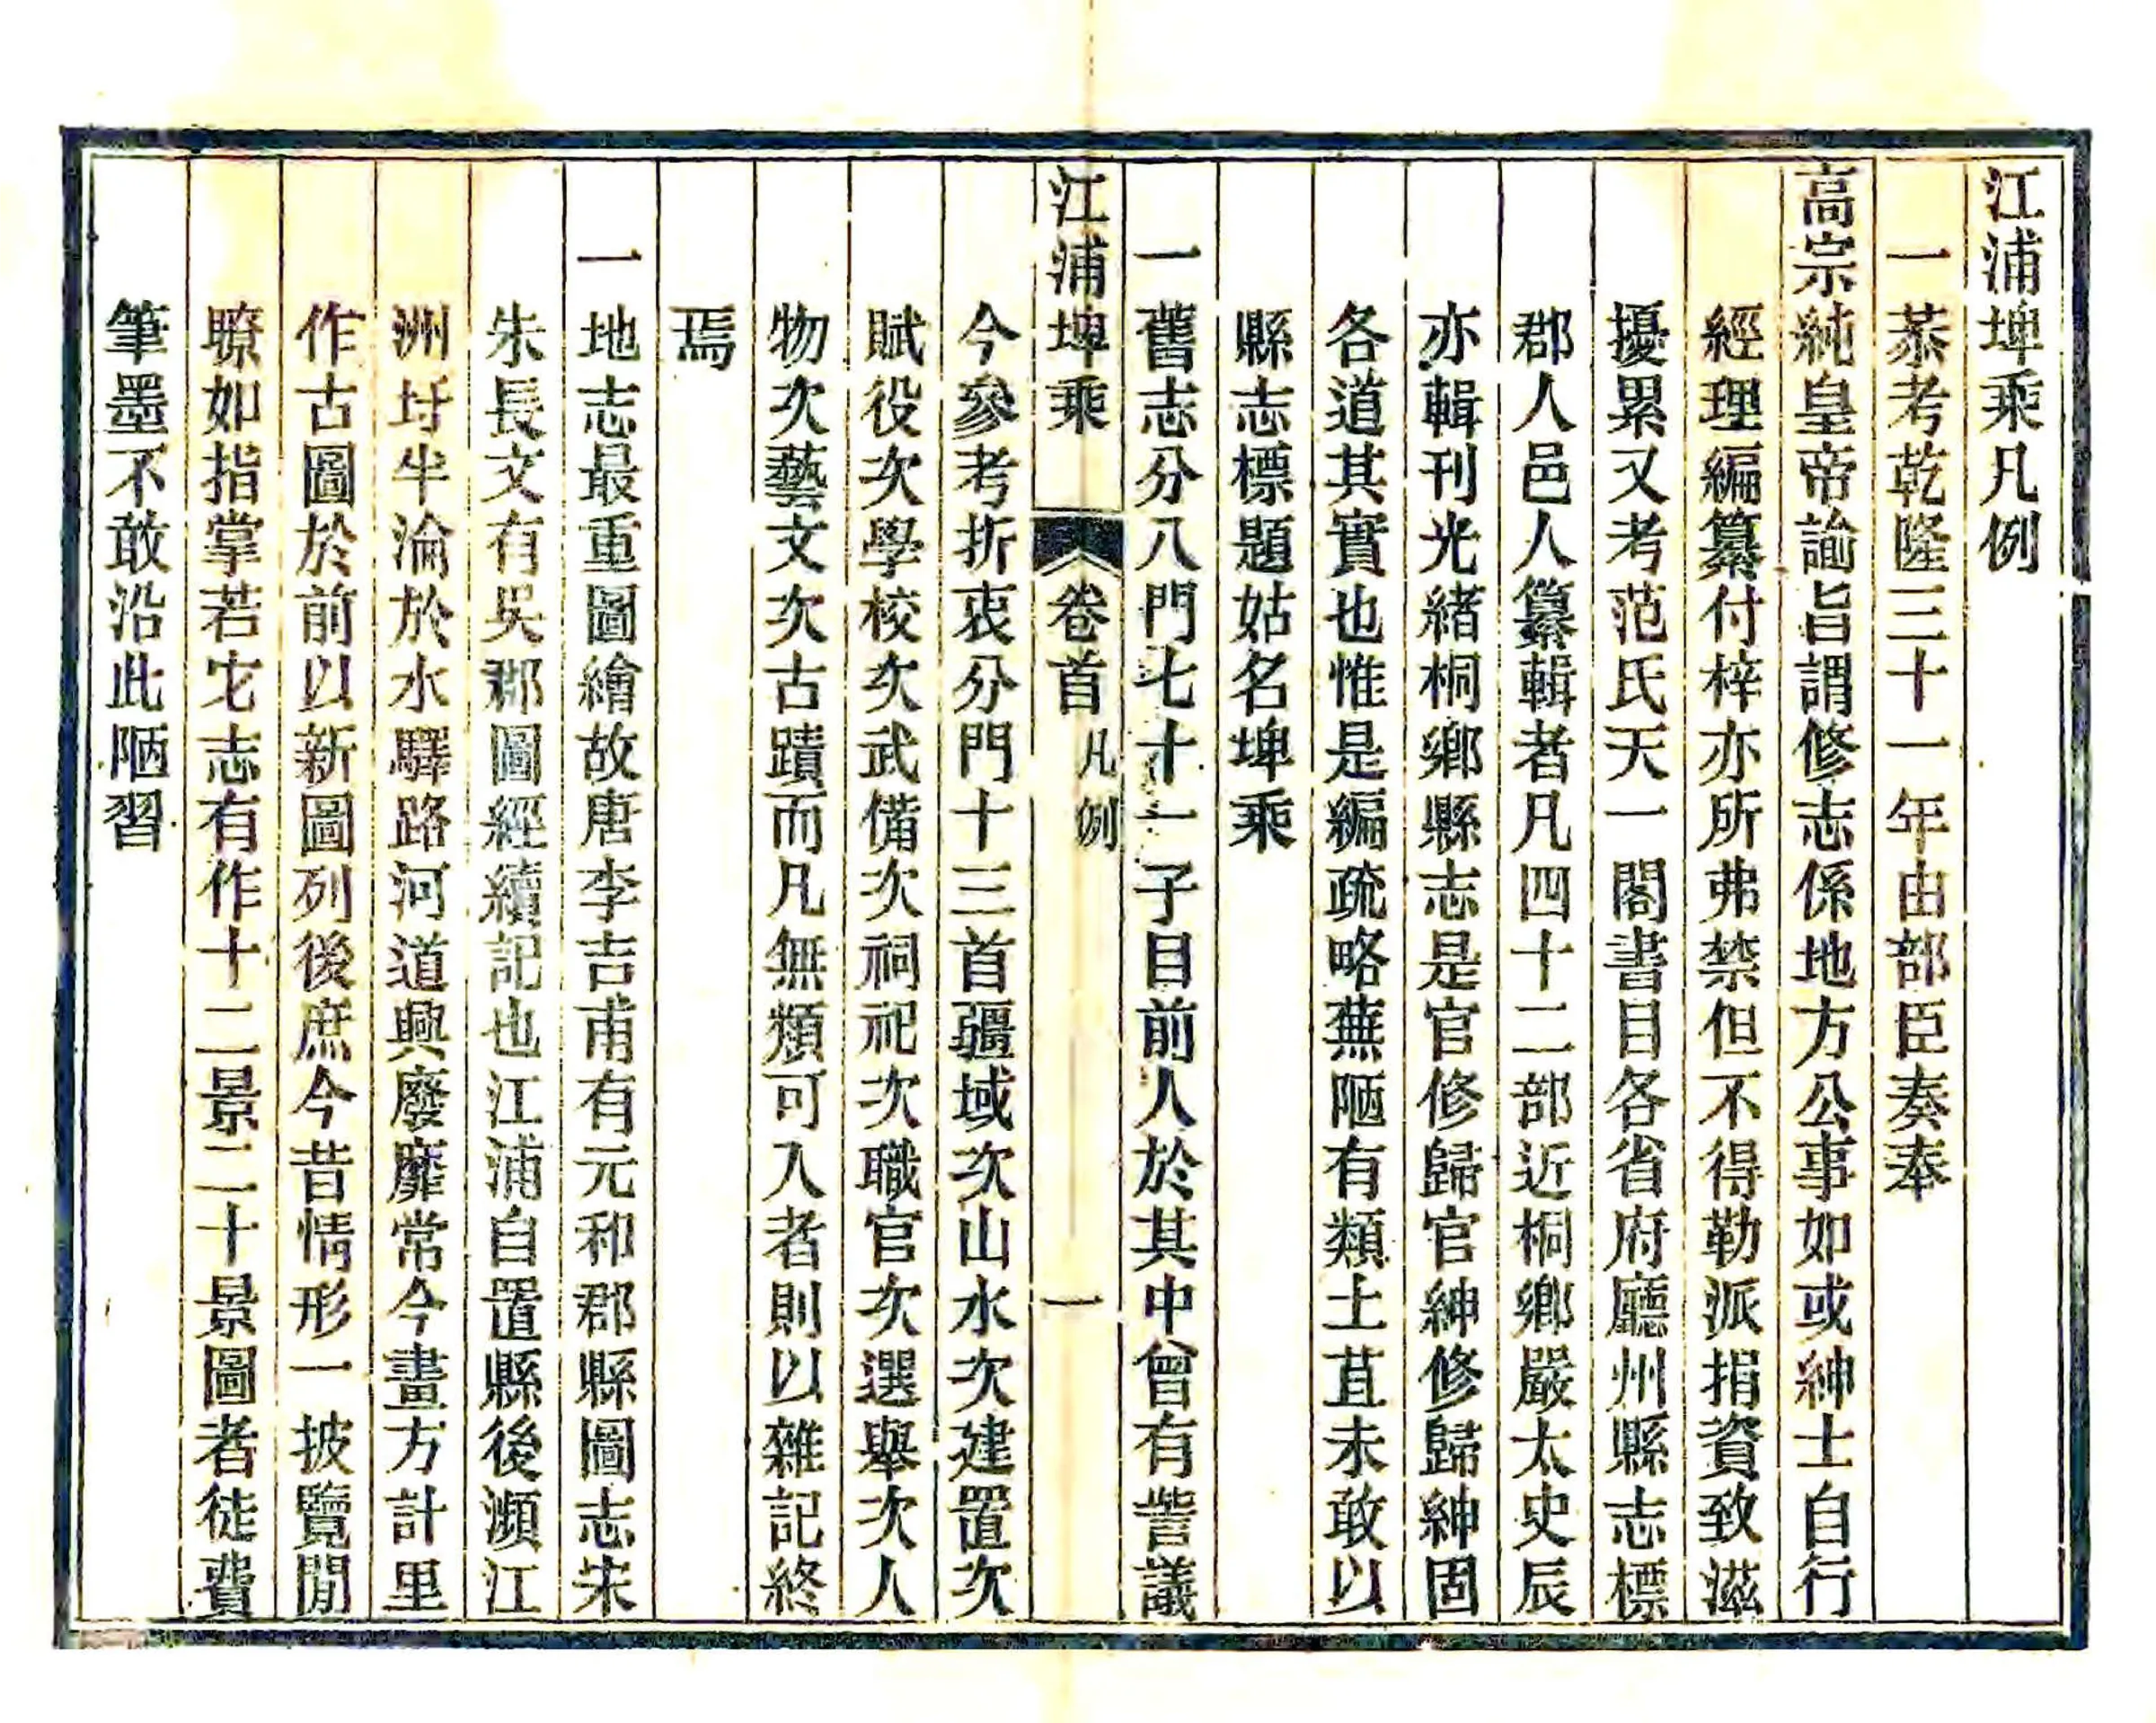 江浦埤乘凡例
一恭考乾隆三十一年由部臣奏奉
高宗純皇帝諭旨謂修志係地方公事如或紳士自行
經理編纂付梓亦所弗禁但不得勒派捐資致滋
擾累又考范氏天一閣書目各省府廳州縣志標
郡人邑人纂輯者凡四十二部近桐鄉嚴太史辰
亦輯刊光緒桐鄉縣志是官修歸官紳修歸紳固
各道其實也惟是編疏略蕪陋有類土苴未敢以
縣志標題姑名埤乘
一舊志分八門七十一子目前人於其中曾有訾議
江浦埤乘 卷首 凡例 一
今參考折衷分門十三首疆域次山水次建置次
賦役次學校次武備次祠祀次職官次選舉次人
物次藝文次古蹟而凡無類可入者則以雜記終
焉
一地志最重圖繪故唐李吉甫有元和郡縣圖志宋
朱長文有吳郡圖經續記也江浦自置縣後瀕江
洲圩半淪於水驛路河道興廢靡常今畫方計里
作古圖於前以新圖列後庶今昔情形一披覽閒
瞭如指掌若它志有作十二景二十景圖者徒費
筆墨不敢沿此陋習